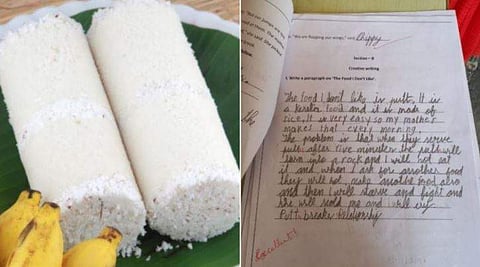 "We are flapping our wings," said Chippy
Section - B
Creative writing
1. Write a paragraph on 'The Food I Don't Like'.
The food I don't like is putt. It is
a kerala food and it is made of
rice. It is very easy so my mother
makes that every morning.
The problem is that when they serve
putt after five minutes the putt will
turn into a rock and I will not eat
it and when I ask for another food
they will not make another food also
and then I will starve and fight and
she will scold me and I will cry.
Putt breakes relationship
Excellent